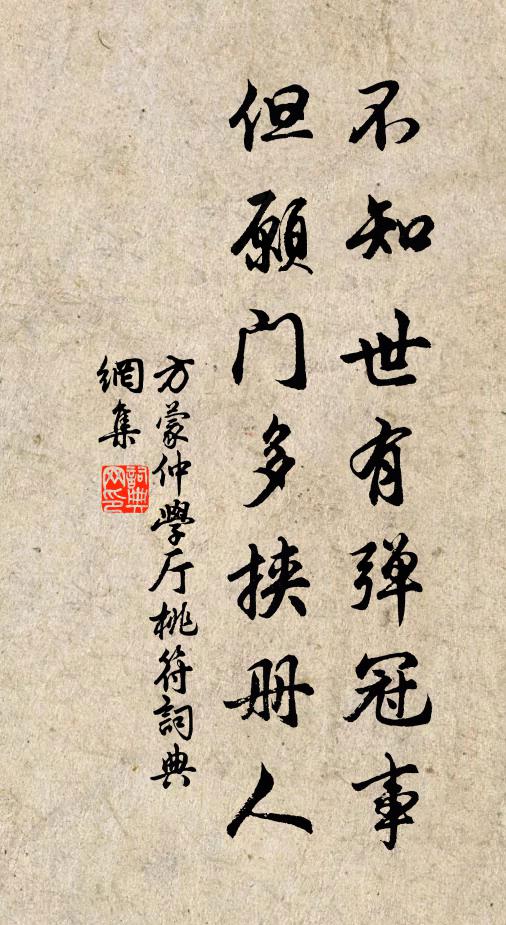 不知世有弹冠事
但願门多挟册人
方蒙仲學厅桃符詞典
網集
詞典
网印